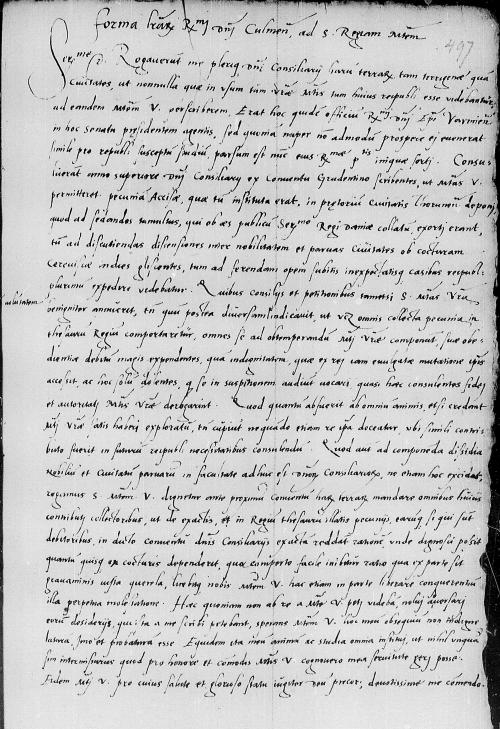 forma l(itte)rar(um) R(everendissi)mi D(omi)ni Culmen(sis) ad S. Regiam M(aies)t(at)em
497
Ser(enissi)me etc. Rogaverunt me pleriq(ue) d(omi)ni Consiliarij harum terrar(um) tam terrigenae qua(m)
Civitates, ut nonnulla quae in usum tam V(est)rae M(aies)t(a)tis tum huius reipubli(cae) esse videbantur
ad eandem M(aies)t(at)em V. perscriberem. Erat hoc quide(m) officiu(m) R(everendissi)mi D(omi)ni Ep(iscop)i Varmien(sis)
in hoc Senatu praesidentem agentis, sed quonia(m) nuper no(n) admodu(m) prospere ei evenerat
simile pro republi(ca) susceptu(m) studiu(m), parsum est nu(n)c eius R(everendissi)mae p(aterni)tis iniquae sorti. Consu
luerat anno superiore d(omi)ni Consiliarij ex Conventu Grudentino scribentes, ut M(aies)tas V.
permitteret pecunia(m) Accisae, quae tu(m) instituta erat, in praetoriu(m) Civitatis Thorunen(sis) deponj
quod ad sedandos tumultus, qui ob aes publicu(m) Ser(enissi)mo Regi Daniae collatu(m) exorti erant,
tu(m) ad discutiendas dissensiones inter nobilitatem et parvas Civitates ob cocturam
Cerevisiae indies gliscentes, tum ad ferendam opem subitis inexpectatisq(ue) casibus reipubli(cae)
plurimu(m) expedire videbatur. Quibus consilijs et petitionibus tametsi S. M(aies)tas V(est)ra
benigniter annueret, tn quu(m) postea diversum indicauit, ut v(idelicet) omnis collecta pecunia in
thesauru(m) Regiu(m) comportaretur, omnes se ad obtemperandu(m) M(aies)t(a)ti V(est)rae componu(n)t, suae obe-
dientiae debitu(m) magis expendentes, qua(m) indignitatem, quae ex rei iam evulgatae mutatione ip(s)is
accessit, ac hoc solu(m) dolentes, q(uod) se in suspitionem audiu(n)t vocari, quasi haec consulentes fidej
et autoritatj M(aies)t(a)tis V(est)rae derogarint. Quod quantu(m) abfuerit ab omniu(m) animis, etsi credant
M(aies)t(a)tj V(est)rae satis haberj exploratu(m), tn cupiu(n)t nequando etiam re ip(s)a doceatur, ubi simili contri-
buto fuerit in futuru(m) reipubli(cae) necessitatibus consulendu(m). Quod aut(em) ad componenda dissidia
Nobiliu(m) et Civitatu(m) parvaru(m) in facultate adhuc est d(omi)nor(um) Consiliarior(um), ne etiam hoc excidat,
rogamus S. M(aies)t(at)em V. dignetur ante proximu(m) Conventu(m) har(um) terrar(um) mandare omnibus huius
contributj collectoribus, ut de exactis, et in Regiu(m) thesauru(m) illatis pecunijs, earu(m)q(ue) si qui su(n)t
debitoribus, in dicto conventu d(omi)nis Consiliarijs exacta(m) reddat ratione(m), unde dignosci possit
quantu(m) quisq(ue) ex cocturis dependerit, quo comperto facile inibitur ratio qua ex parte sit
gravaminis iusta querela, licebitq(ue) nobis M(aies)t(at)em V. hac etiam in parte liberare conquerentiu(m)
illa perpetua molestatione. Haec quoniam non ab re a M(aies)t(a)te V. petj videba(m), noluj adversarj
eoru(m) desiderijs, qui ista a me scribi petebant, sperans M(aies)t(at)em V. hoc meu(m) obsequiu(m) non indigne
latura(m), sed et probatura(m) esse. Equidem ita meu(m) animu(m) ac studia omnia institui, ut nihil unqua(m)
sim intermissurus quod pro honore et comodis M(aies)t(a)tis V. cognovero mea servitute gerj posse.
Eidem M(aies)t(a)tj V. pro cuius salute et glorioso statu iugiter deu(m) precor, devotissime me comendo.